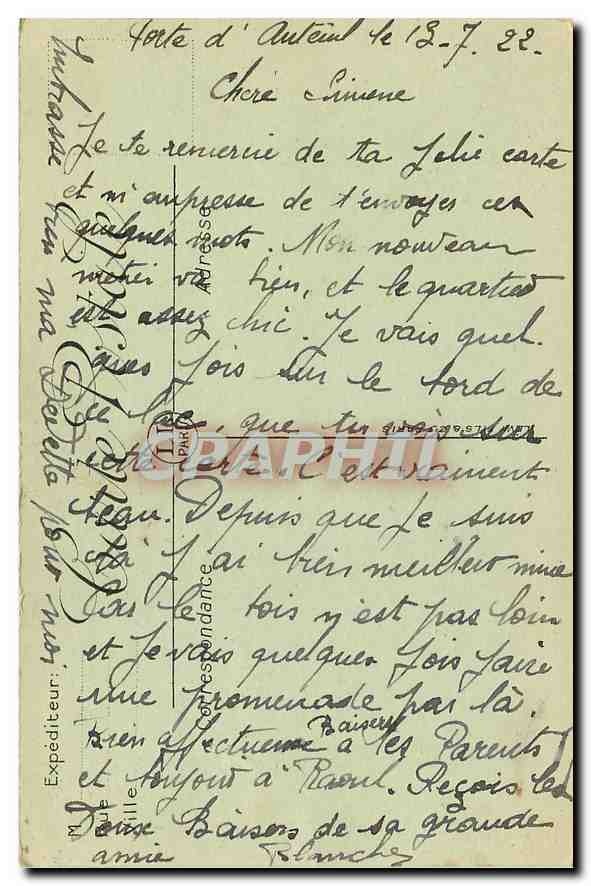 Porte d'Auteuil le 13-7. 22-
Chère Simone
Je te remercie de ta Jolie carte
et m'aupresse de t'envoyer ces
quelques mots. Mon nouveau
métier va bien, et le quartier
est assez chic. Je vais quel.
ques fois sur le bord de
ce lac, que tu vis sur
cette carte. C'est vraiment
beau. Depuis que Je suis
là J'ai bien meilleur mine
Car le bois n'est pas loin
et Je vais quelques fois faire
une promenade par là.
Baisers
Bien affectueux à tes Parents
et toujour à Raoul. Reçois les
Doux Baisers de sa grande
amie Blanche
Embrasse bien ma Dedette pour moi
Carte Postale
Adresse
Correspondance
Expéditeur:
M
Rue
Ville
LL
PARIS
LEVY FILS & Cie PARIS
CPAPHIL